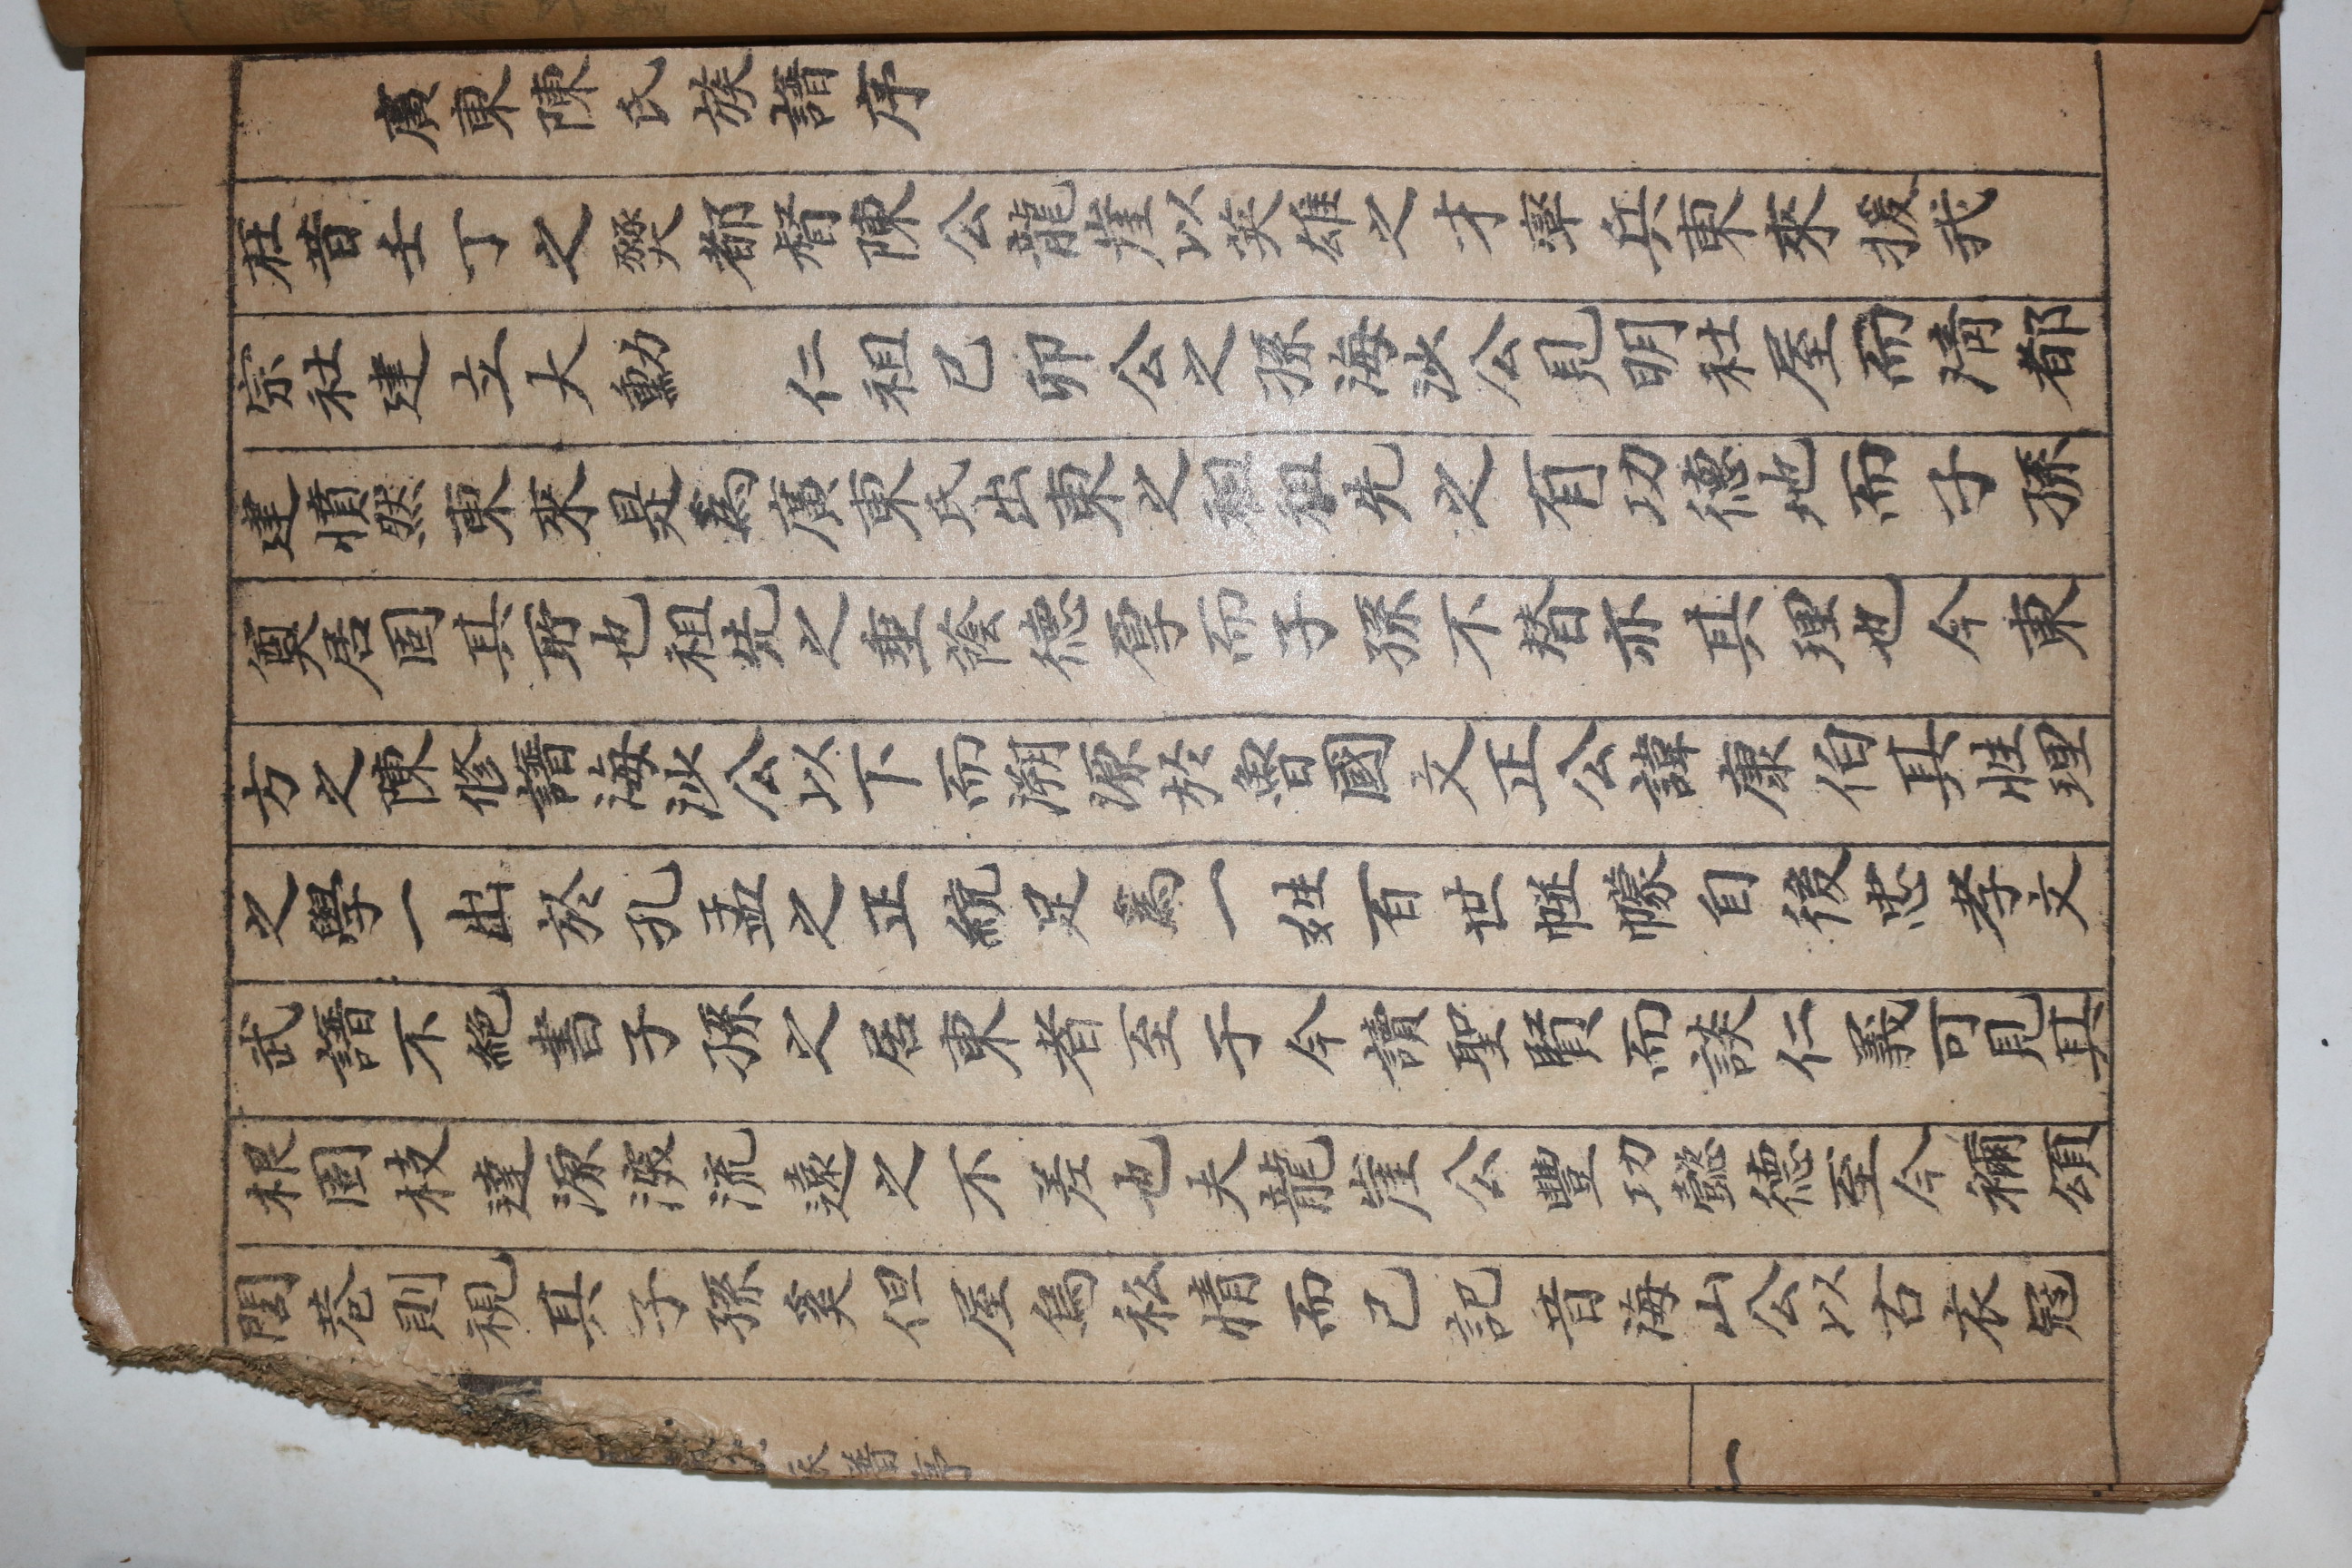 廣東陳氏族譜序
在昔壬丁之燹都督陳公龍崖以英雄之才率兵東來援我
宗社建立大勳 仁祖己卯公之孫海沙公見明社屋而淸都
建憤然東來是爲廣東氏出東之祖祖先之有功德也而子孫
奠居固其所也祖先之垂蔭德厚而子孫不替亦其理也今東
方之陳修譜海沙公以下而溯源於魯國文正公諱康伯其性理
之學一出於孔孟之正統足爲一姓百世帡幪自後忠孝文
武譜不絶書子孫之居東者至于今讀聖賢而談仁義可見其
根固枝達源深流遠之不差也夫龍崖公豐功懿德至今稱頌
閭巷則視其子孫奚但屋烏私情而已記昔海山公以古衣冠
氏譜序
一